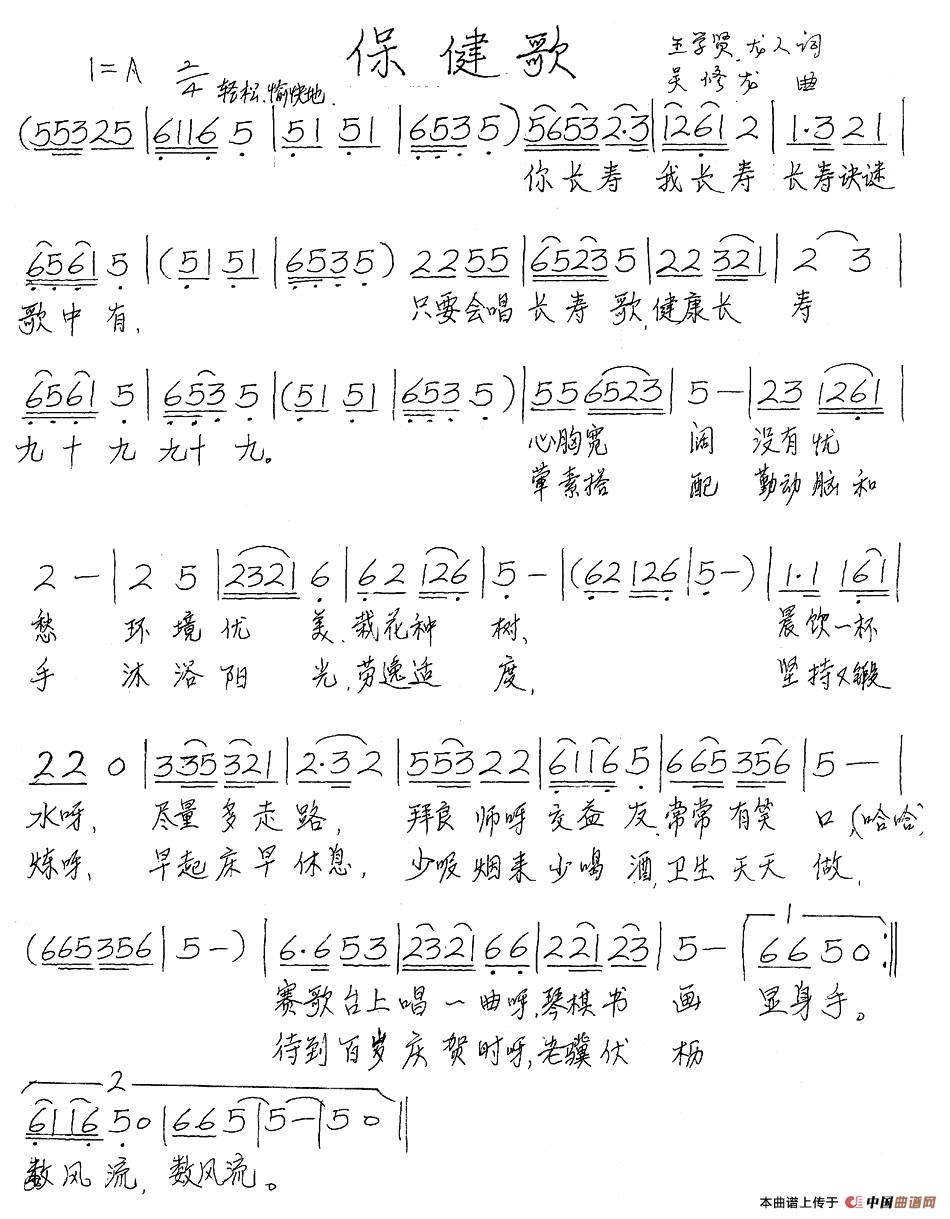 保健歌
王学贤、龙人词
1=A 2/4 轻松、愉快地
吴修龙 曲
(553325|6116 5|51 51|6535)56532·3|1261 2|1·3 21|
你长寿 我长寿 长寿诀谜
6561 5|(51 51|6535)2255|65235|22 321|2 3|
歌中有, 只要会唱长寿歌,健康长 寿
6561 5|653 5|(51 51|653 5)|556523|5 -|23 1261|
九十九 九十九。 心胸宽 阔 没有忧
荤素搭 配 勤动脑和
2 -|2 5|2321 6|62 126|5 -|(62 126|5-)|1·1 161|
愁 环境优 美、栽花种 树、 晨饮一杯
手 沐浴阳 光,劳逸适 度, 坚持又锻
22 0|335321|2·3 2|553 22|6116 5|665356|5 -|
水呀, 尽量多走路, 拜良师呀交益友,常常有笑 口(哈哈,
炼呀, 早起床早休息, 少吸烟来少喝酒,卫生天天 做,
(665356|5-)|6·6 53|23·21 66|221 23|5-|1 66 50:‖
赛歌台上唱一曲呀,琴棋书 画 显身手。
待到百岁庆贺时呀,老骥伏 枥
2
6116 50|66 5|5-|5 0‖
数风流, 数风流。
本曲谱上传于 中国曲谱网